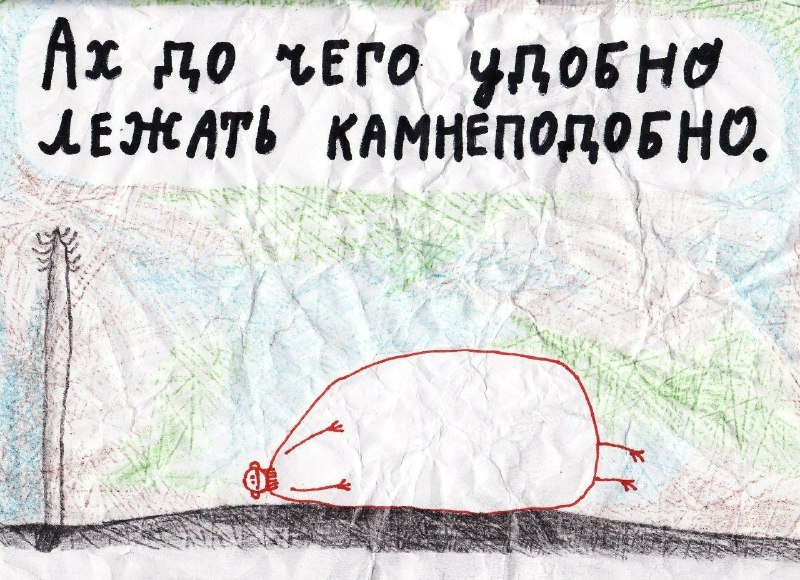 Ах до чего удобно
лежать камнеподобно.